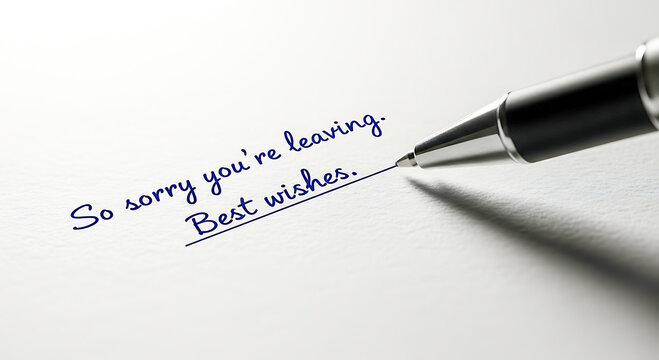 So sorry you're leaving.
Best wishes.